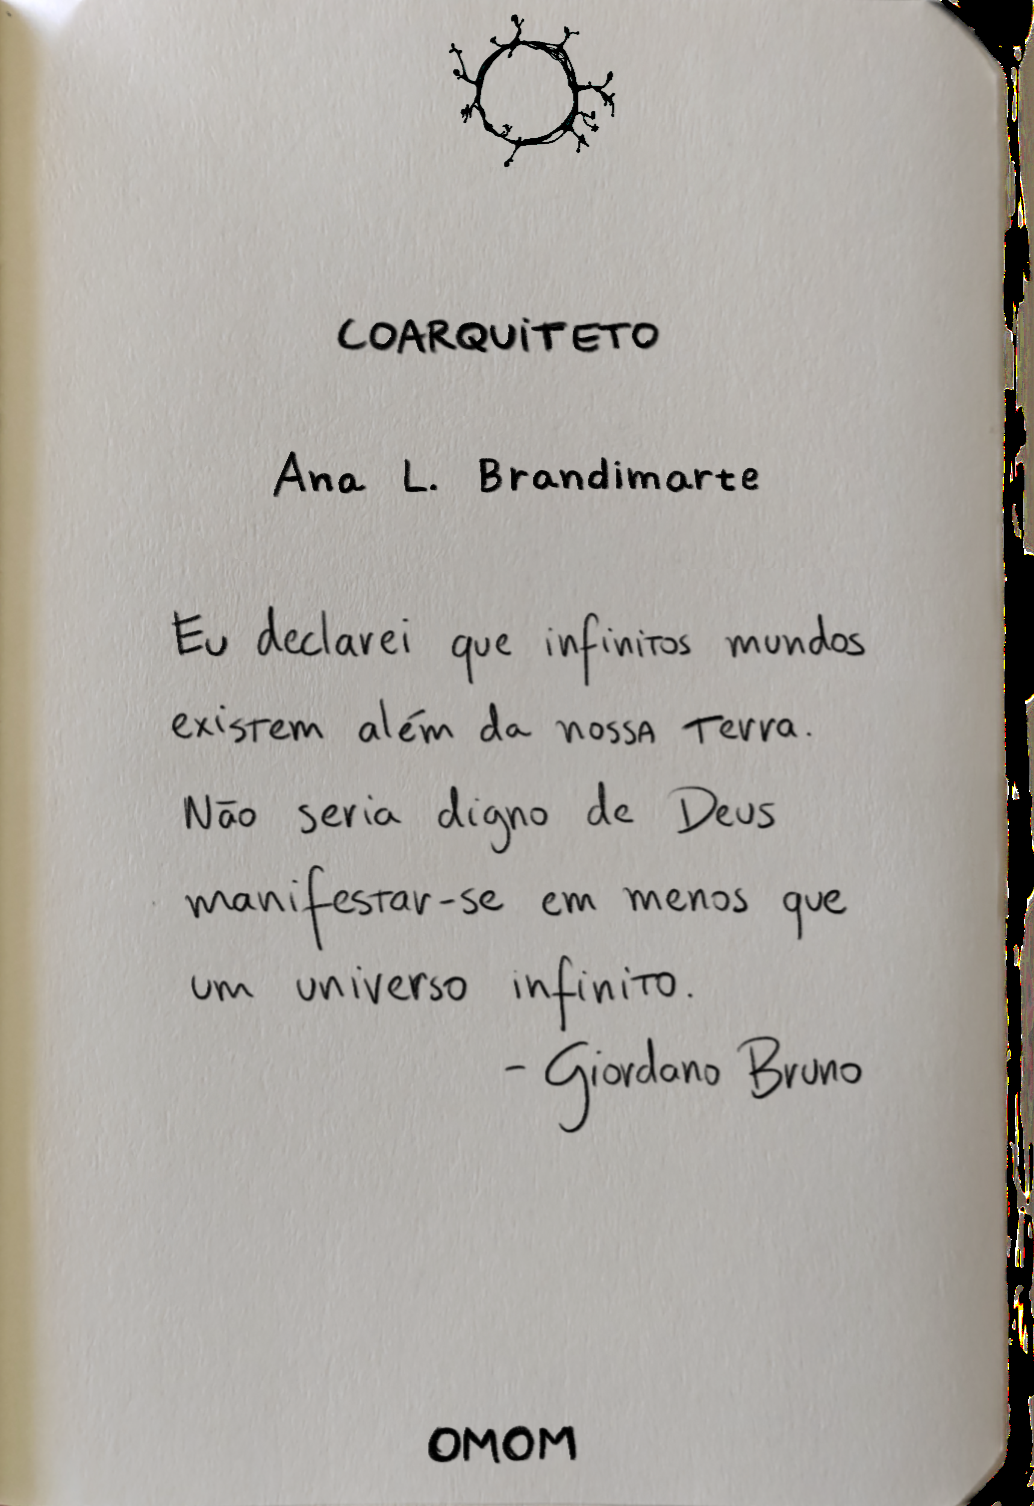 COARQUITETO
Ana L. Brandimarte
Eu declarei que infinitos mundos
existem além da nossa Terra.
Não seria digno de Deus
manifestar-se em menos que
um universo infinito.
- Giordano Bruno
OMOM